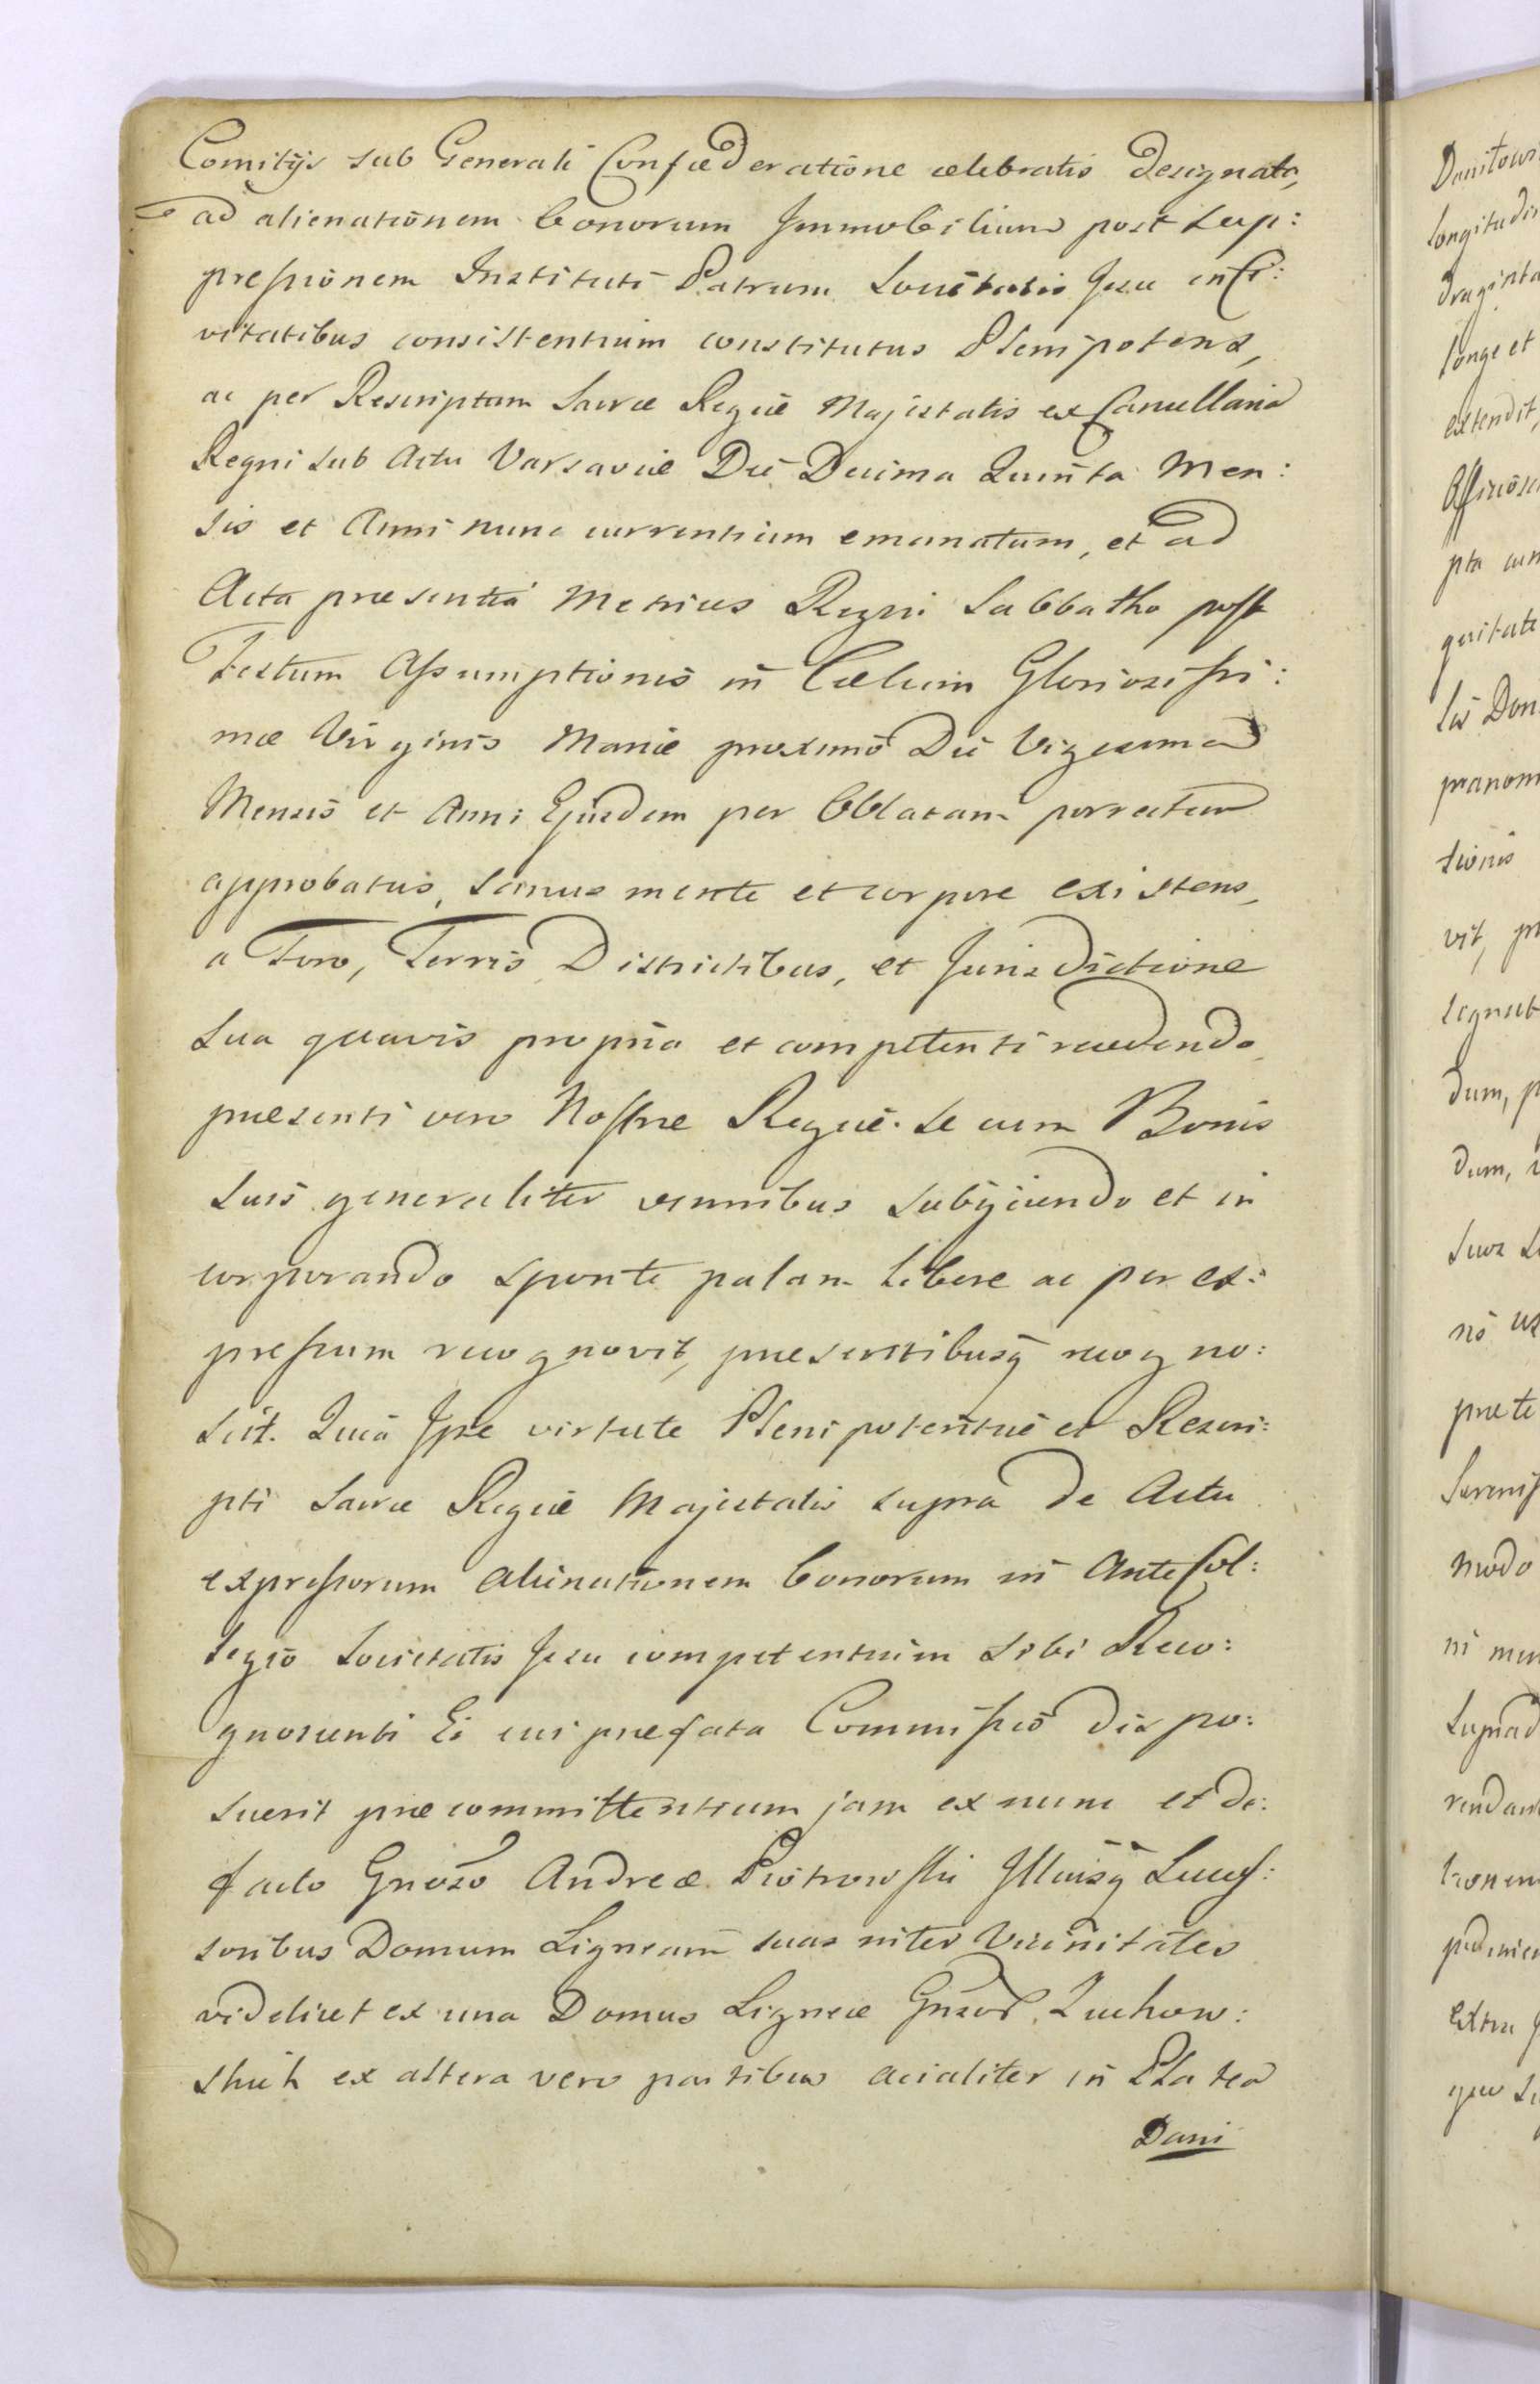 Comitijs sub Generali Confœderatione celebratis designata,
ad alienationem bonorum Immobilium post sup:
pressionem Instituti Patrum Societatis Jesu in Ci:
vitatibus consistentium constitutus Plenipotens,
ac per Rescriptum Sacræ Regiæ Majestatis ex Cancellaria
Regni sub Actu Varsaviæ Die Decima Quinta Men:
sis et Anni nunc currentium emanatum, et ad
Acta præsentia Metrices Regni Sabbatho post
Festum Assumptionis in Cœlum Gloriosissi:
mæ Virginis Mariæ proximo Die Vigesima
Mensis et Anni Ejusdem per Oblatam porrectum
approbatus, sanus mente et corpore existens,
a Foro, Terris Districtibus, et Jurisdictione
sua quavis propria et competenti recedendo
præsenti vero Nostræ Regiæ se cum Bonis
suis generaliter omnibus subijciendo et in
corporando sponte palam libere ac per ex:
pressum recognovit, præsentibusq recogno:
scit. Quia Ipse virtute Plenipotentiæ et Rescri:
pti Sacræ Regiæ Majestatis supra de Actu
expressorum alienationem bonorum in Ante Col:
legio Societatis Jesu competentium sibi Reco:
gnoscenti Ei cui præfata Commissio dispo:
suerit præcommittentium jam ex nunc et de:
facto Gnoso Andreæ Piotrowski Illiusq Succes:
soribus Domum Ligneam suas inter Vicinitates
videlicet ex una Domus Ligneæ Gnsor. Zuchow:
skich ex altera vero partibus acialiter in Platea
Dani
Danitowi
longitudi
draginta
longe et
extendit,
pta cum
sionis
vit, pr
dum, p
dum,
præte
modo
extra